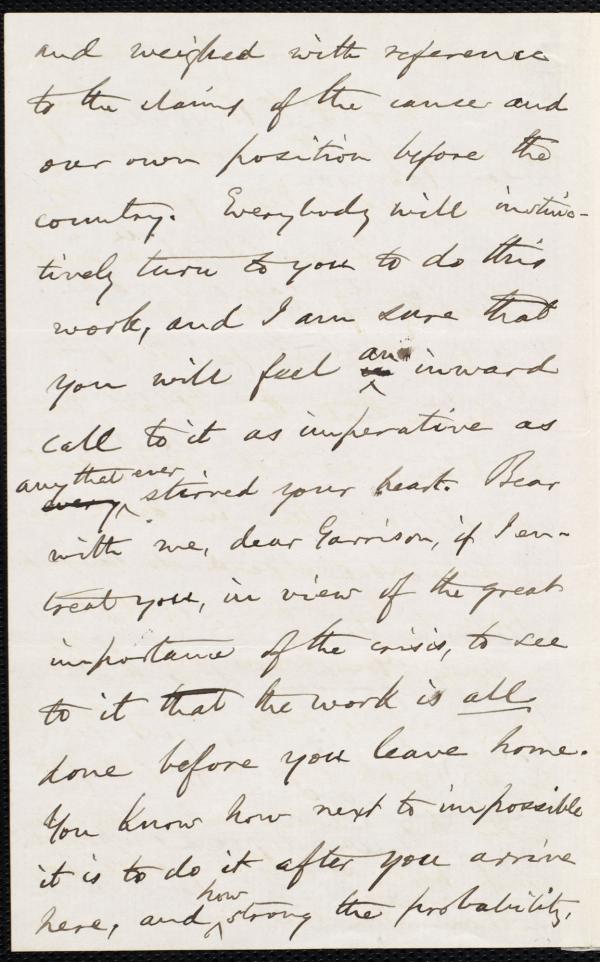 and weighed with reference
to the claims of the cause and
our own position before the
country. Everybody will instinc-
tively turn to you to do this
work, and I am sure that
you will feel an inward
call to it as imperative as
any that ever
every stirred your heart. Bear
with me, dear Garrison, if I en-
treat you, in view of the great
importance of the crisis, to see
to it that the work is all
done before you leave home.
You know how next to impossible
it is to do it after you arrive
how
here, and strong the probability,